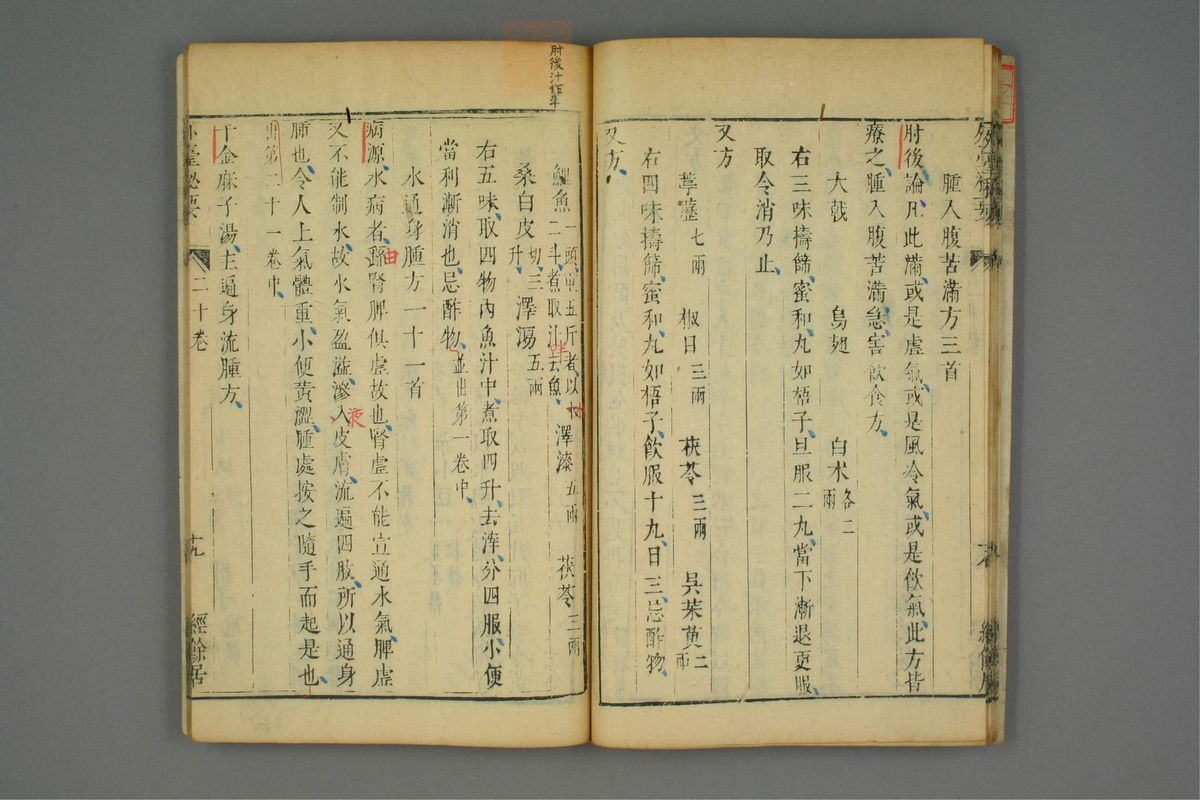 腫入腹苦滿方三首
肘後論凡此滿或是虛氣或是風冷氣或是飲氣此方皆
療之腫入腹苦滿急害飲食方
大戟 烏翅 白朮各二兩
右三味擣篩蜜和丸如梧子旦服二丸當下漸退更服
取令消乃止
又方
葶藶七兩 椒目三兩 茯苓三兩 吳茱萸二兩
右四味擣篩蜜和丸如梧子飲服十丸日三忌酢物
又方
肘後汁作斗
鯉魚一頭重五斤者以水二斗煮取汁去魚 澤漆五兩 茯苓三兩
桑白皮切三升 澤瀉五兩
右五味取四物內魚汁中煮取四升去滓分四服小便
當利漸消也忌酢物並出第一卷中
水通身腫方一十一首
病源水病者由腎脾俱虛故也腎虛不能宣通水氣脾虛
又不能制水故水氣盈溢滲入皮膚流遍四肢所以通身
液
腫也令人上氣體重小便黃澀腫處按之隨手而起是也
出第二十一卷中
千金麻子湯主遍身流腫方
外臺祕要 二十卷 十九 經餘居